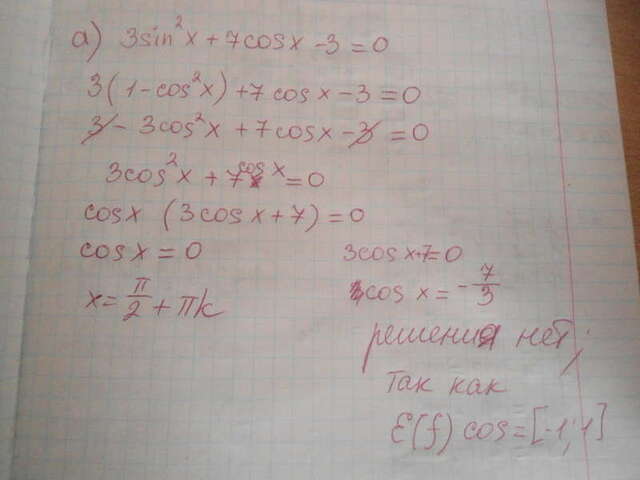 а) 3sin²x + 7cosx - 3 = 0
3(1 - cos²x) + 7cosx - 3 = 0
3 - 3cos²x + 7cosx - 3 = 0
3cos²x + 7cosx = 0
cosx (3cosx + 7) = 0
cosx = 0
x = π/2 + πk
3cosx+7=0
cosx = -7/3
решения нет,
так как
E(f) cos = [-1; 1]